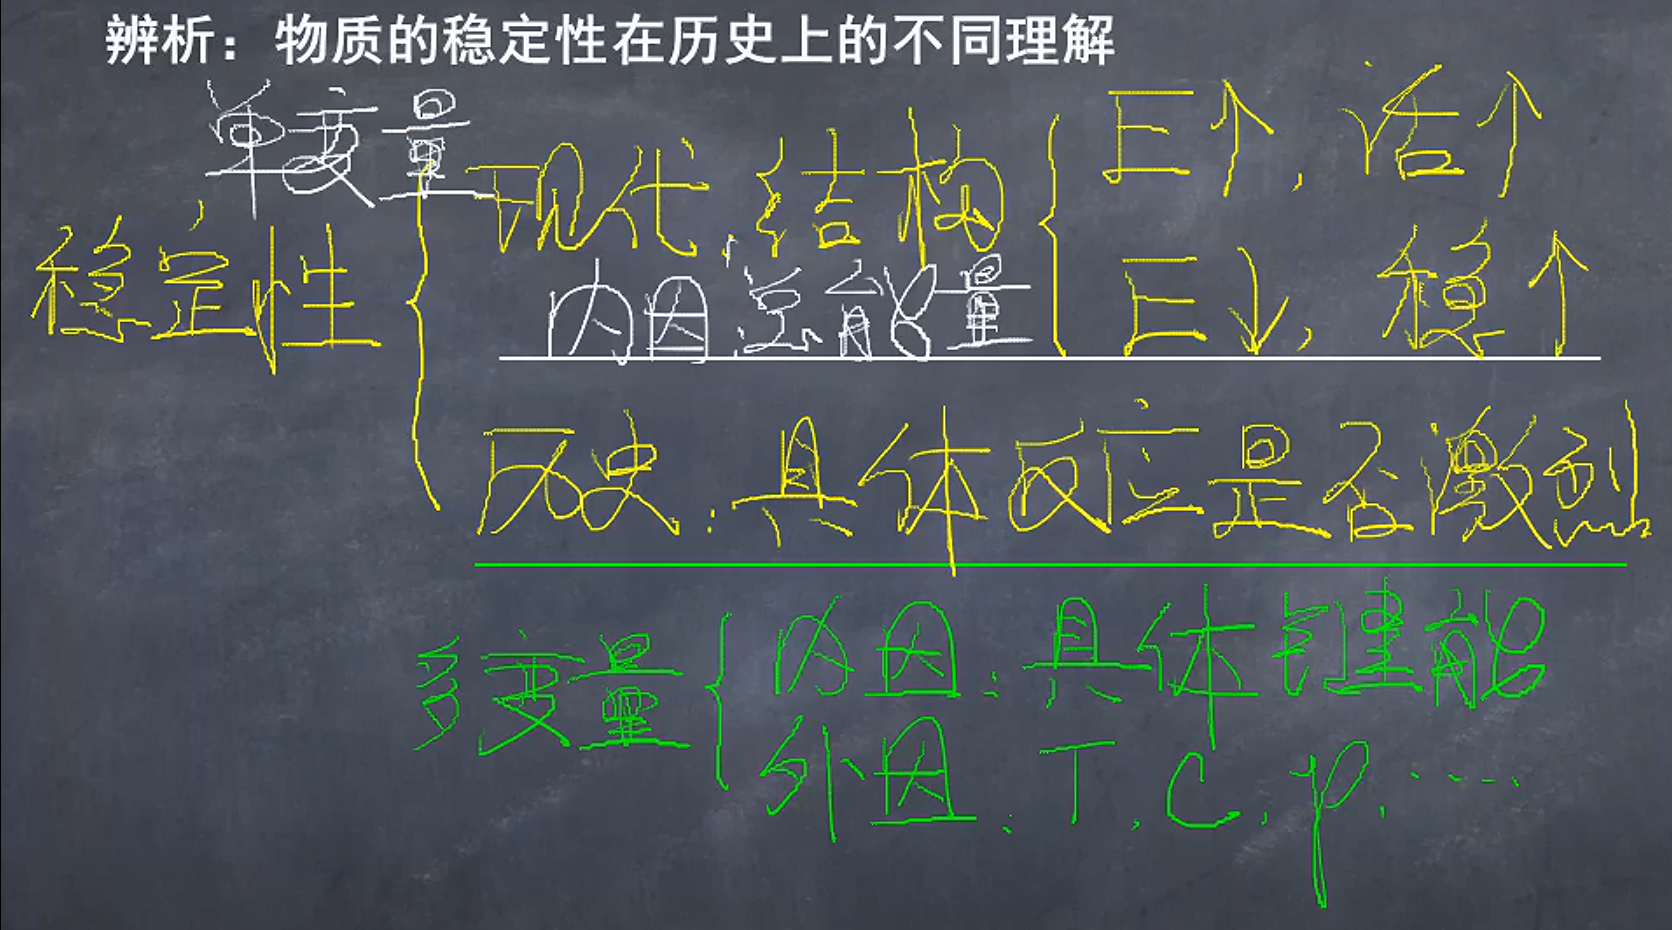 辨析：物质的稳定性在历史上的不同理解
单变量
稳定性
现代:结构
E↑,活↑
内因:总能量
E↓,稳↑
历史:具体反应是否激烈
多变量
内因:具体键能
外因:T,C,p,……